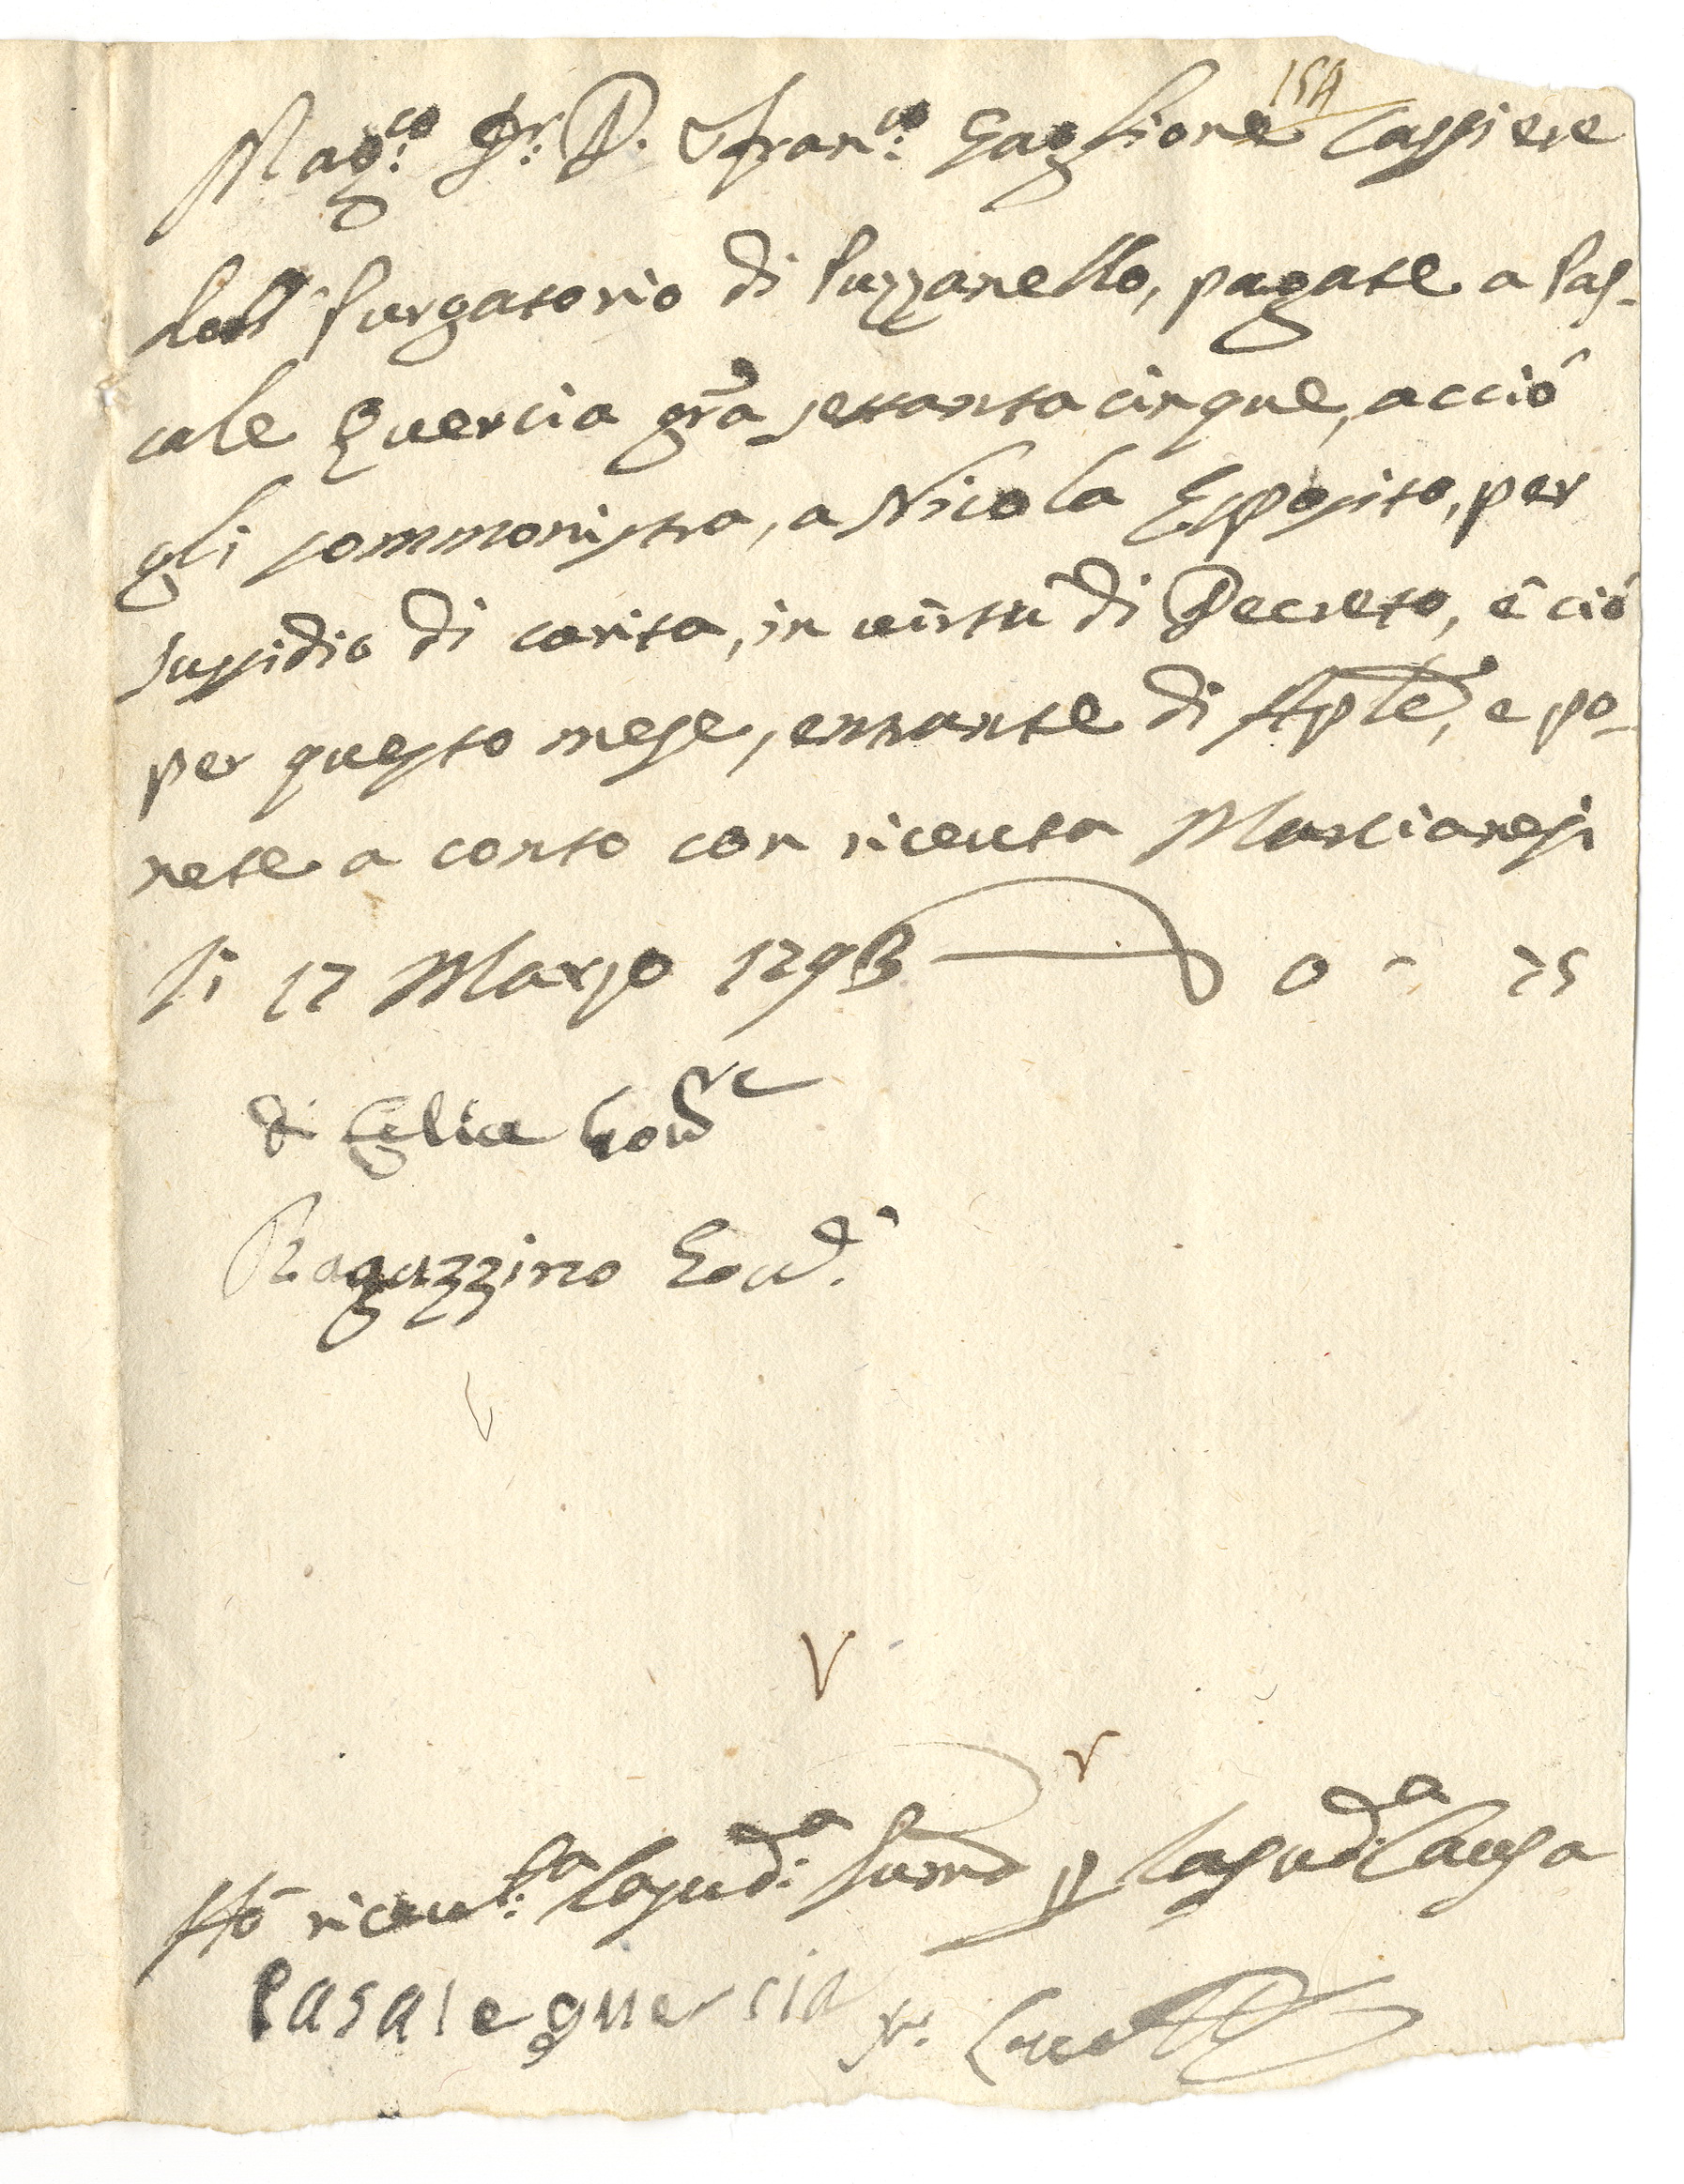 154
Mag.co Sr. D. Fran.co Gaglione Cassiere
dell Purgatorio di Puzzanello, pagate a Pas-
cale Quercia gra settantacinque, acciò
gli sommonistra, a Nicola Esposito, per
sussidio di carita, in virtù di Decreto, é ciò
per questo mese, entrante di Aple, e po-
nete a conto con ricevuta Marcianesi
li 17 Marzo 1793 0 - 75
di Felice Gov.re
Ragazzino Gov.
V
V
Hò ricevu.ta la sud.a summa la sud.a Causa
Pasale quercia